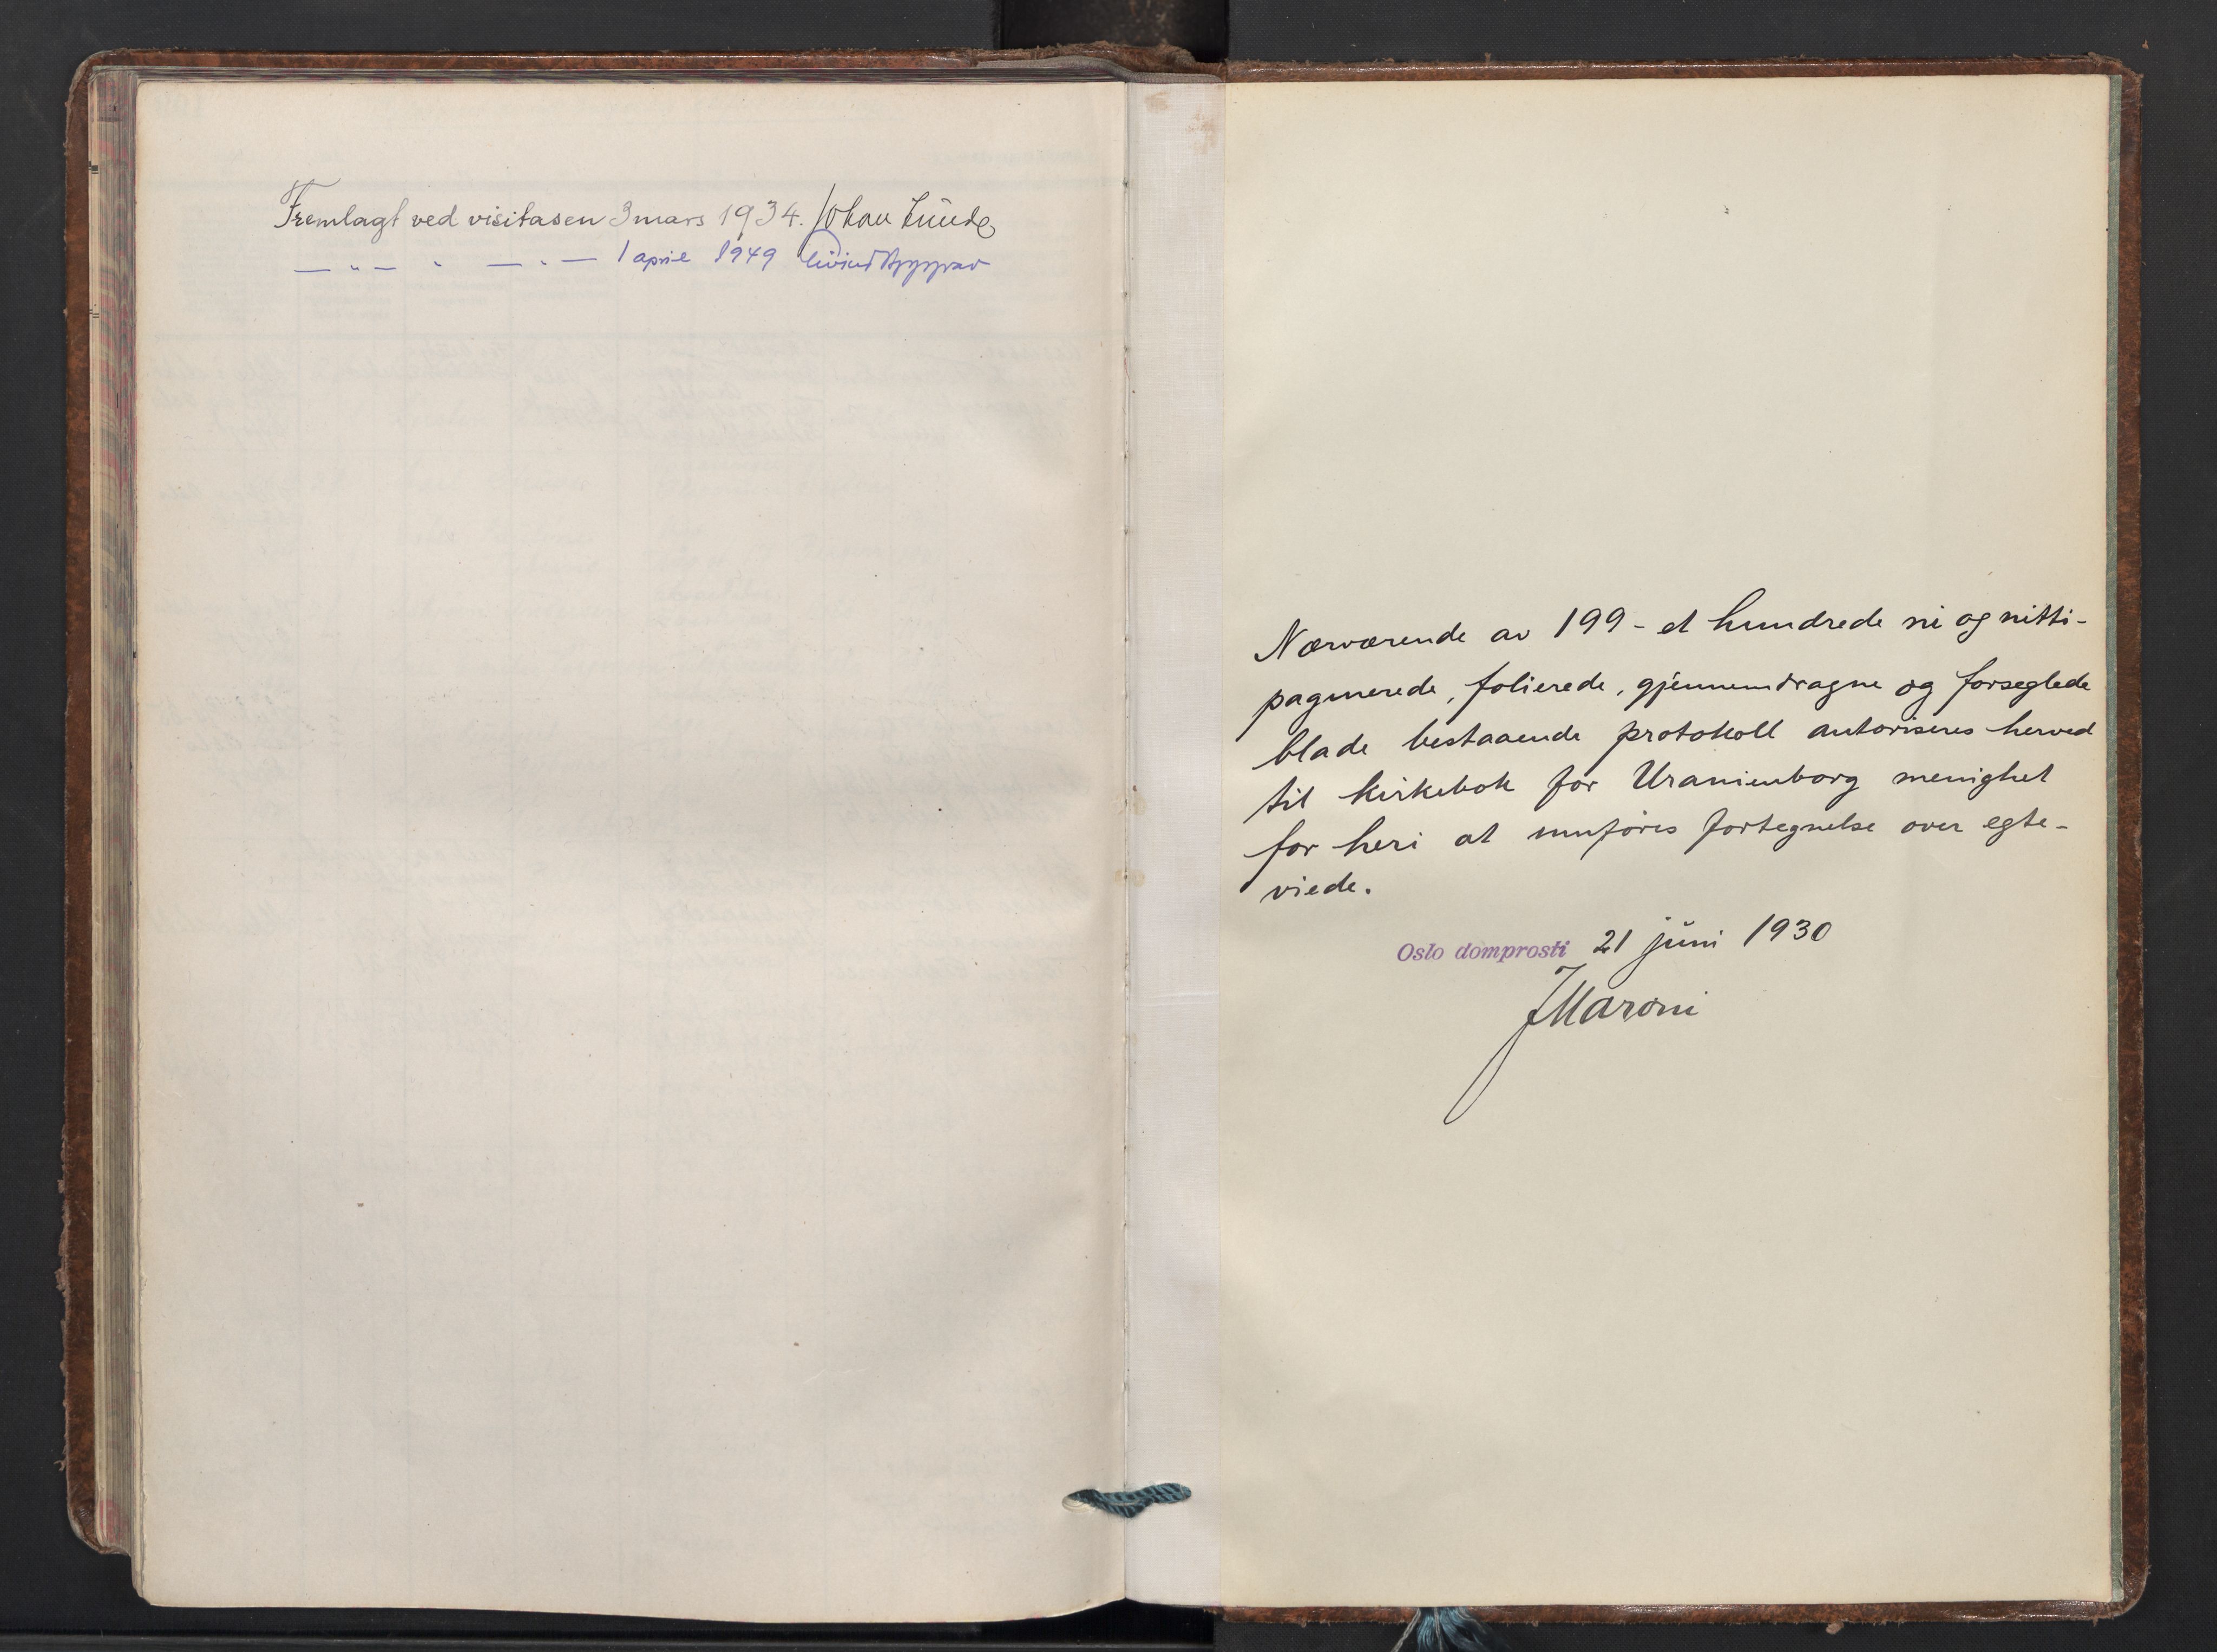 Fremlagt ved visitasen 3 mars 1934. Johan Lunde
— " — " — " — 1 april 1949 Eivind Berggrav
Nærværende av 199 - et hundrede ni og nitti -
paginerede, folierede, gjennemdragne og forseglede
blade bestaaende protokoll autoriseres herved
til kirkebok for Uranienborg menighet
for heri at innføres fortegnelse over egte-
viede.
Oslo domprosti 21 juni 1930
JMaroni